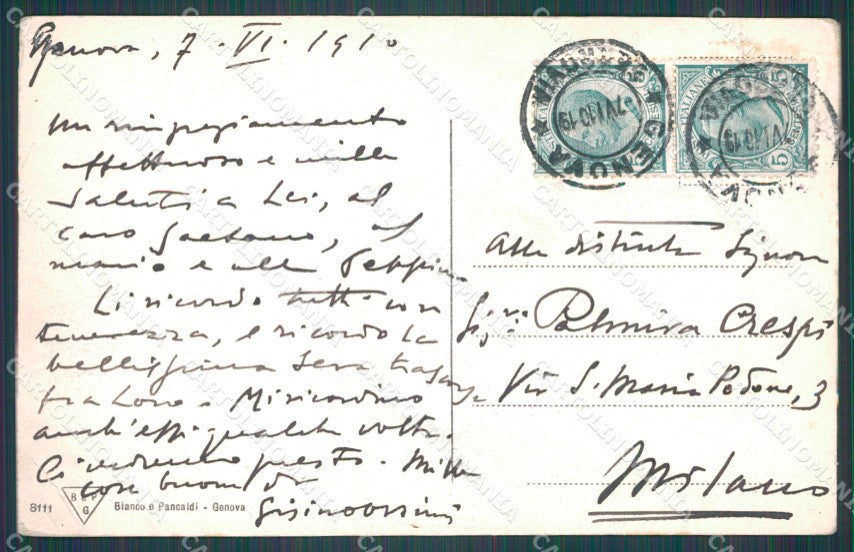 Genova, 7. VI. 1910
Un ringraziamento
affettuoso e mille
saluti a Lei, al
caro Gaetano, al
e alla Peppina
Li ricordo tutti con
tenerezza, e ricordo la
bellissima sera
fra Loro. Mi ricordino
anch'essi qualche volta.
Ci vedremo presto. Mille
cose buone da
8111
B & P
G
Bianco e Pancaldi - Genova
GENOVA
7 VI 10 19
5
Alla distinta Signora
Sig.ra Palmira Crespi
Via S. Maria Podone, 3
Milano
CARTOLINOMANIA